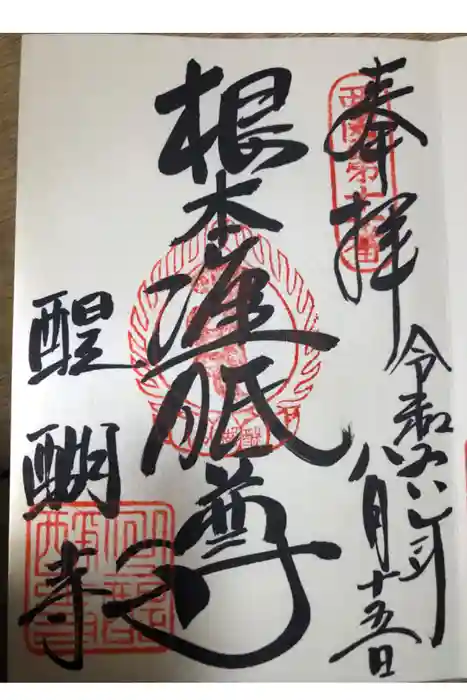 奉拝
令和六年八月十五日
根本准胝尊
醍醐寺